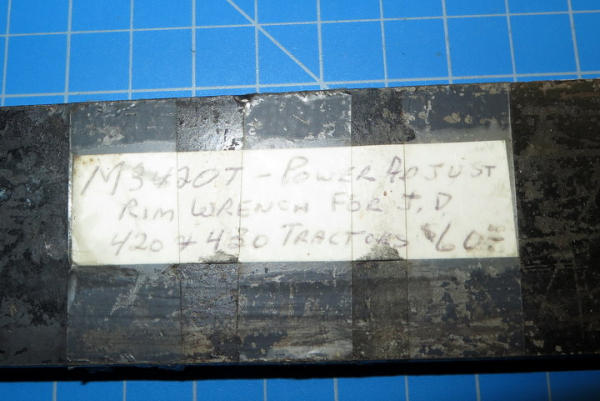 M3420T - POWER ADJUST
RIM WRENCH FOR J.D
420 + 430 TRACTORS $60=